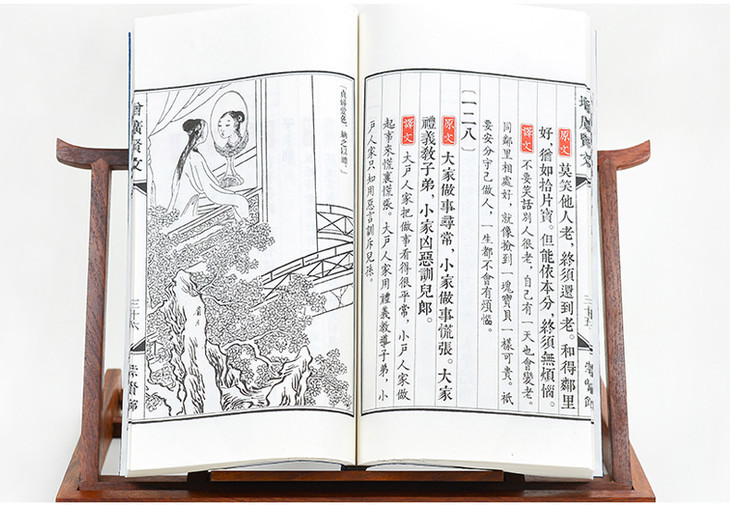 增廣賢文
三十五
崇賢館
原文 莫笑他人老，終須還到老。和得鄰里
好，猶如拾片寶。但能依本分，終須無煩惱。
譯文 不要笑話別人很老，自己有一天也會變老。
同鄰里相處好，就像撿到一塊寶貝一樣可貴。祇
要安分守己做人，一生都不會有煩惱。
〔一二八〕
原文 大家做事尋常，小家做事慌張。大家
禮義教子弟，小家凶惡訓兒郎。
譯文 大戶人家把做事看得很平常，小戶人家做
起事來慌裏慌張。大戶人家用禮義教導子弟，小
戶人家只知用惡言訓斥兒孫。
「貞婦愛色，納之以禮。」
增廣賢文
三十六
崇賢館